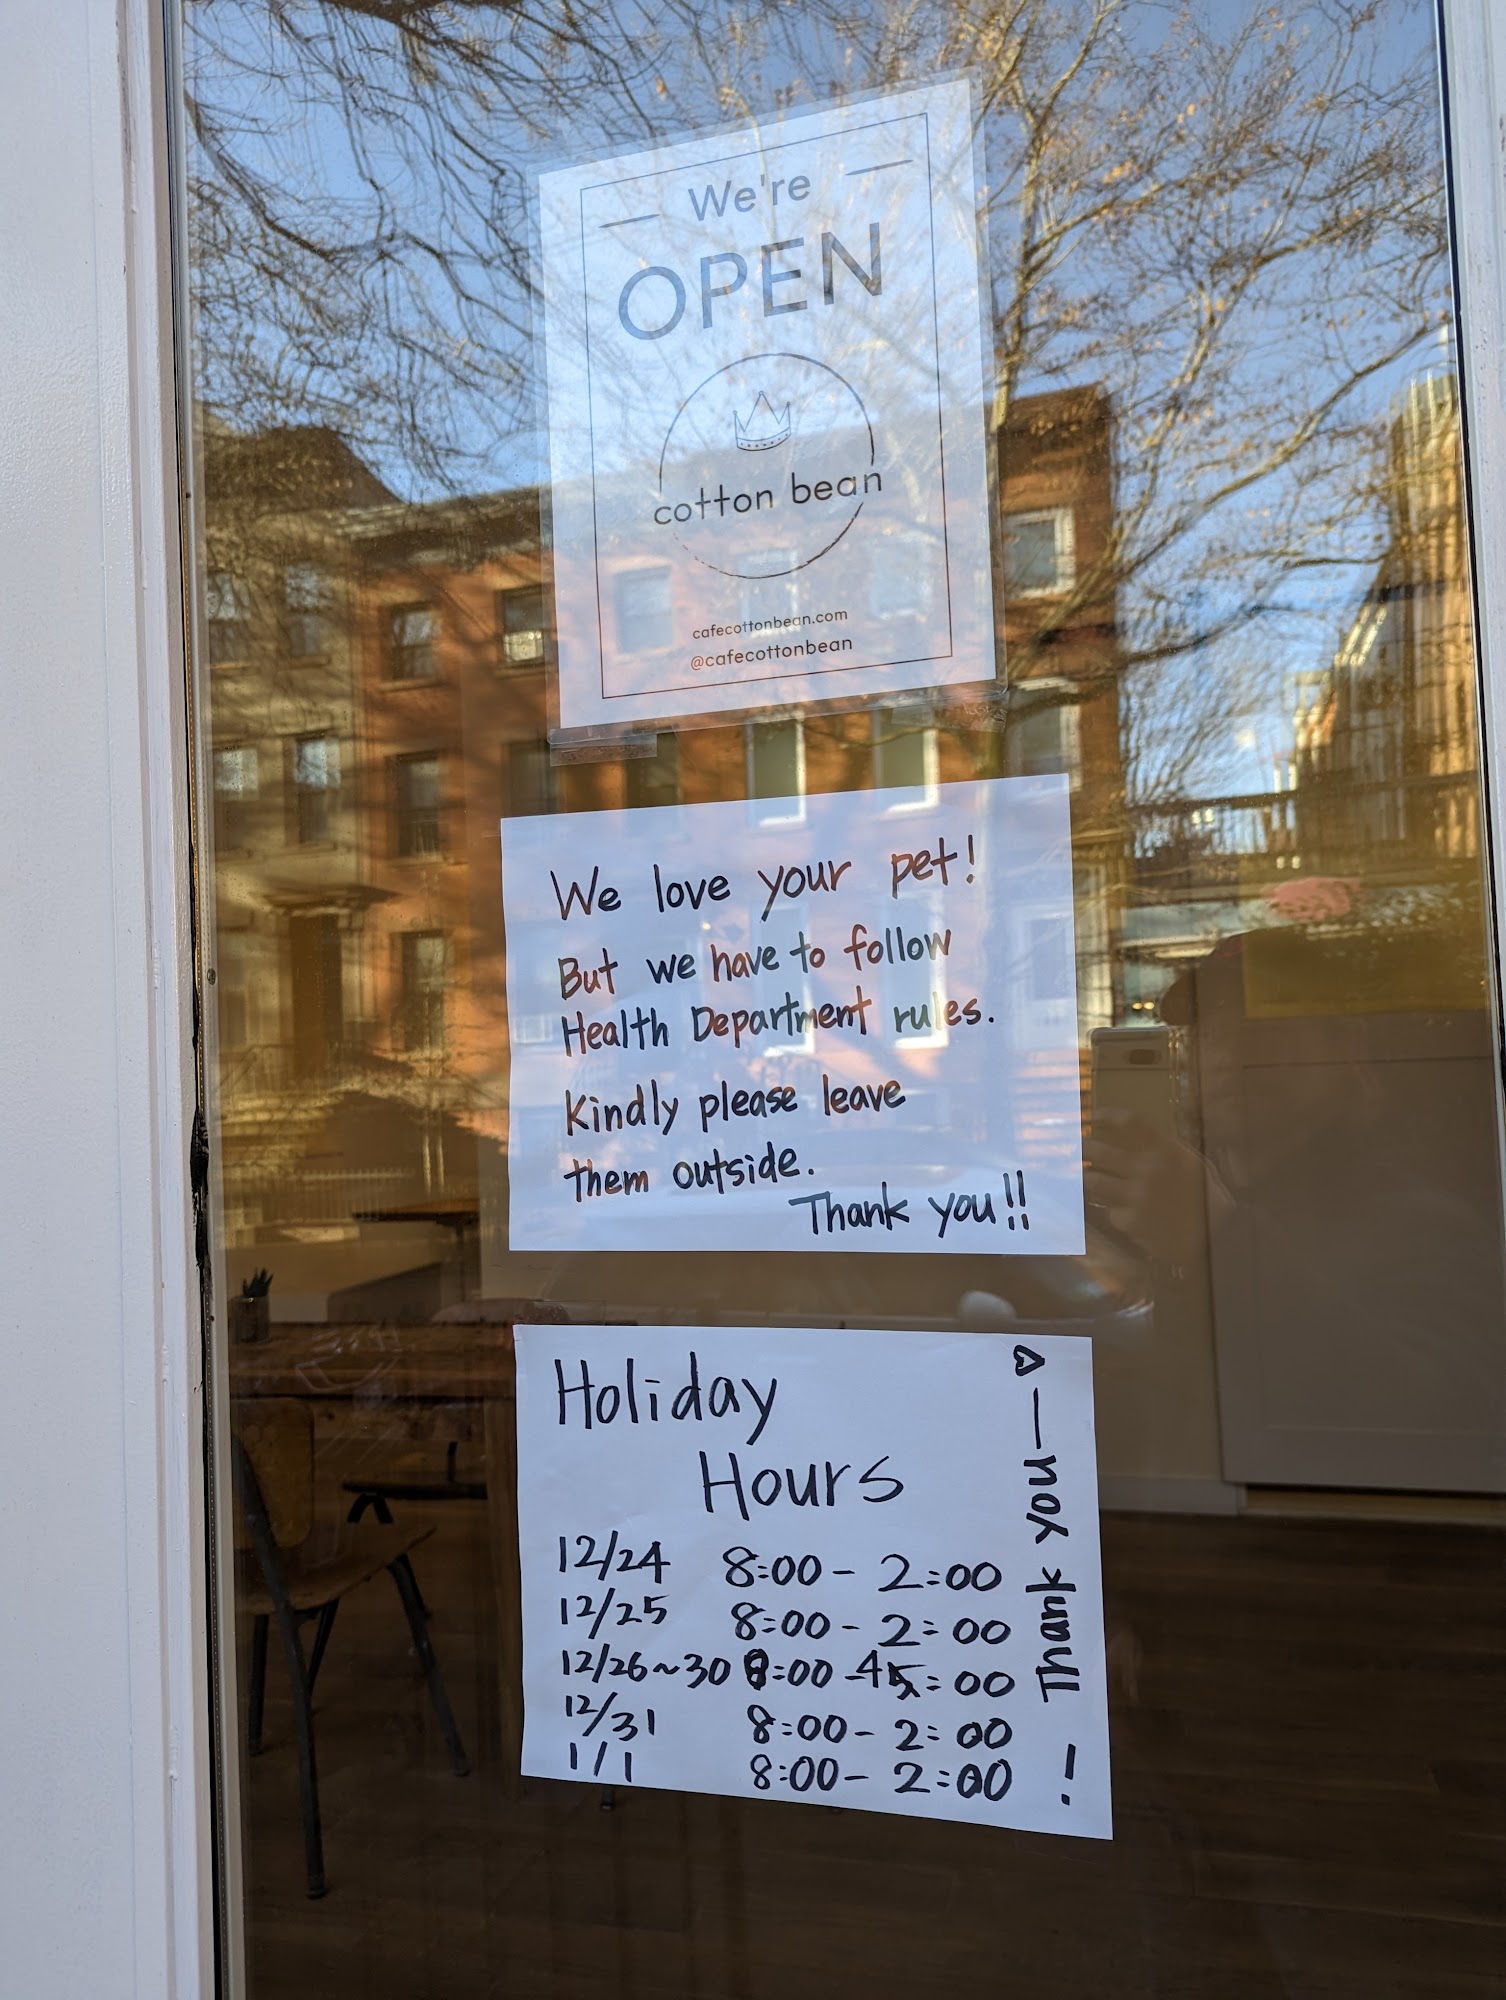 We're
OPEN
cotton bean
cafecottonbean.com
@cafecottonbean
We love your pet!
But we have to follow
Health Department rules.
Kindly please leave
them outside.
Thank you!!
Holiday
Hours
12/24 8:00 - 2:00
12/25 8:00 - 2:00
12/26~30 8:00 - 4:00
12/31 8:00 - 2:00
1/1 8:00 - 2:00
! Thank you —♡